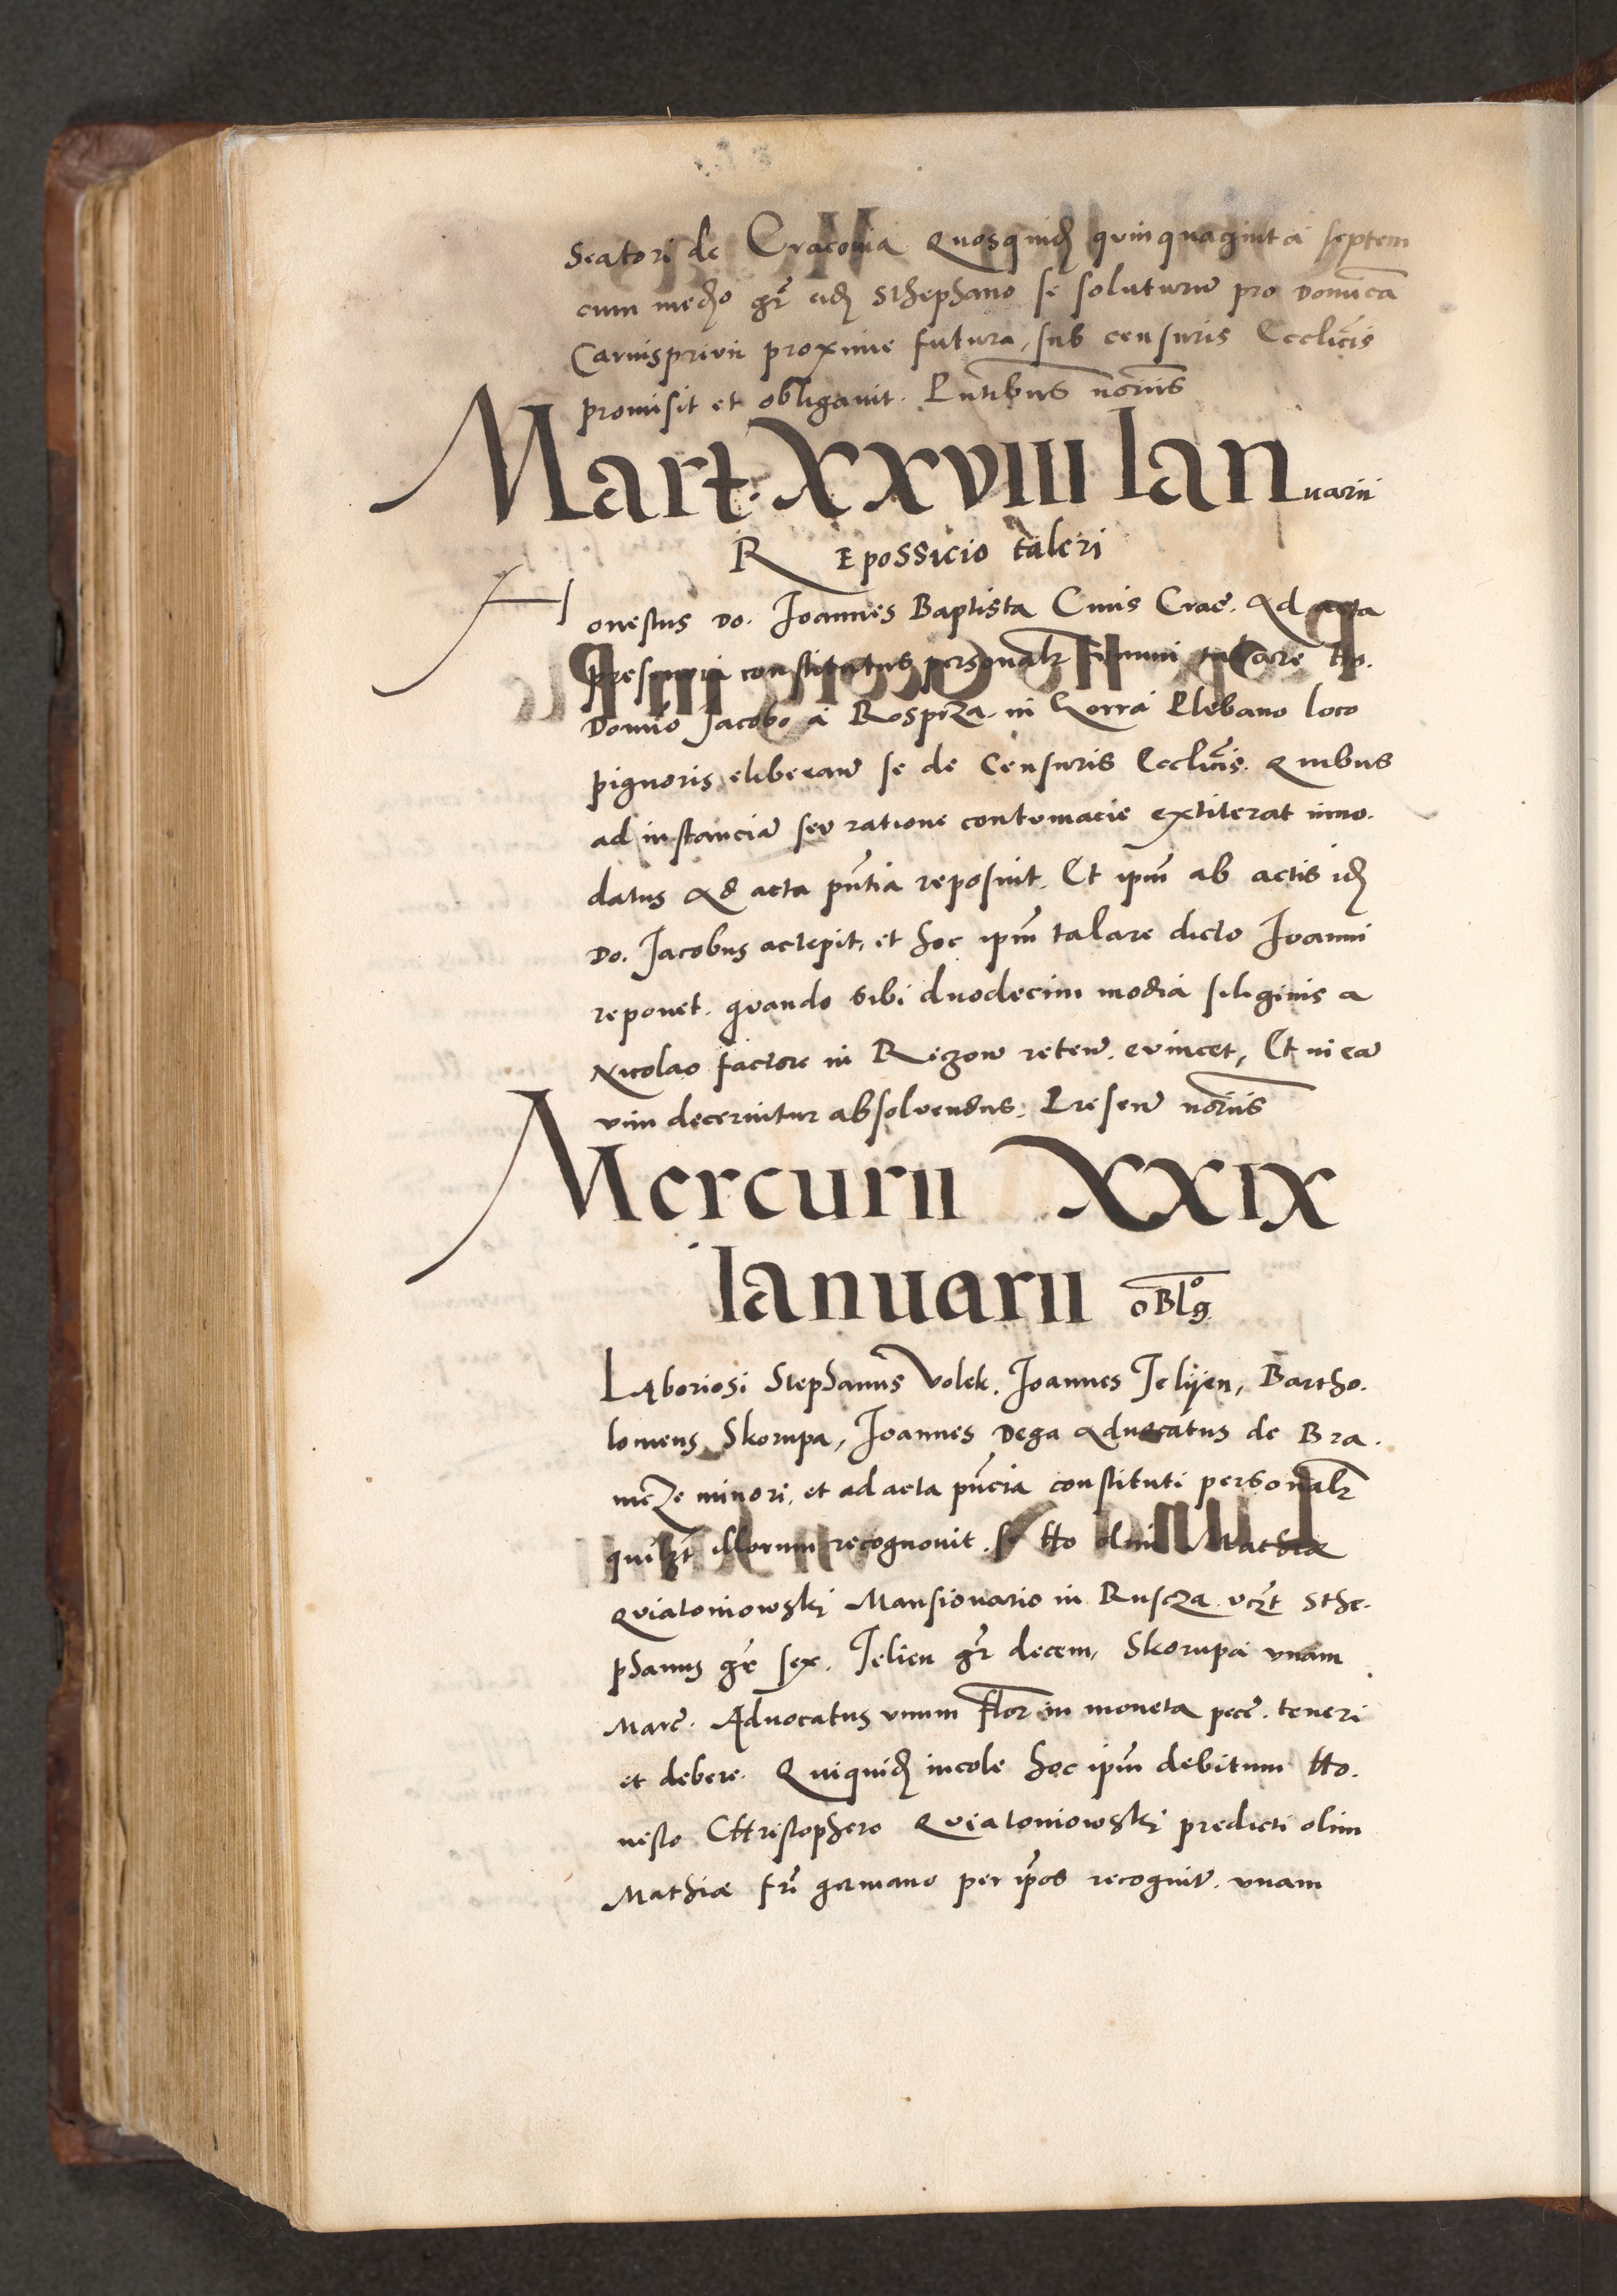 Seatori de Cracovia Quosquid quinquaginta septem
cum medio gr eid Sthephano se soluturum pro Dominica
Carnisprivii proxime futura, sub censuris Ecclicis
promisit et obligavit. Pntibus notriis
Mart. XXVIII Ianuarii
Repossicio taleri
Honestus Do. Joannes Baptista Civis Crac. Ad acta
presencia constitutus personalr unum talare Ho.
Domino Jacobo a Rospcza in Gorra Plebano loco
pignoris, elibeean se de Censuris Ecclicis. Quibus
ad instancia seu ratione contumacie extiterat inno.
datus Ad acta pntia reposuit. Et ipm ab actis id
Do. Jacobus accepit, et hoc ipm talare dicto Joanni
reponet. quando sibi duodecim modia siliginis a
Nicolao factore in Rigzow reten. evincet, Et in ea
vim decernitur absolvendus. Presen notriis
Mercurii XXIX
Ianuarii oblg
Laboriosi Stephanus Volek. Joannes Jelijen, Bartho.
lomeus Skorupa, Joannes Dega Advocatus de Bra.
mcze minori, et ad acta pncia constituti personalr
quilzt illorum recognovit. se Ho olim Mathiæ
Qviatoniowski Mansionario in Ruscza vczt Sthe-
phanus gr sex. Jelien gr decem, Skorupa vnam
Marc. Advocatus vnum flor in moneta pecc. teneri
et debere. Quiquid incole hoc ipm debitum Ho.
nesto Christophero Qviatoniowski predicti olim
Mathiæ fri germano per ipos recognit. vnam